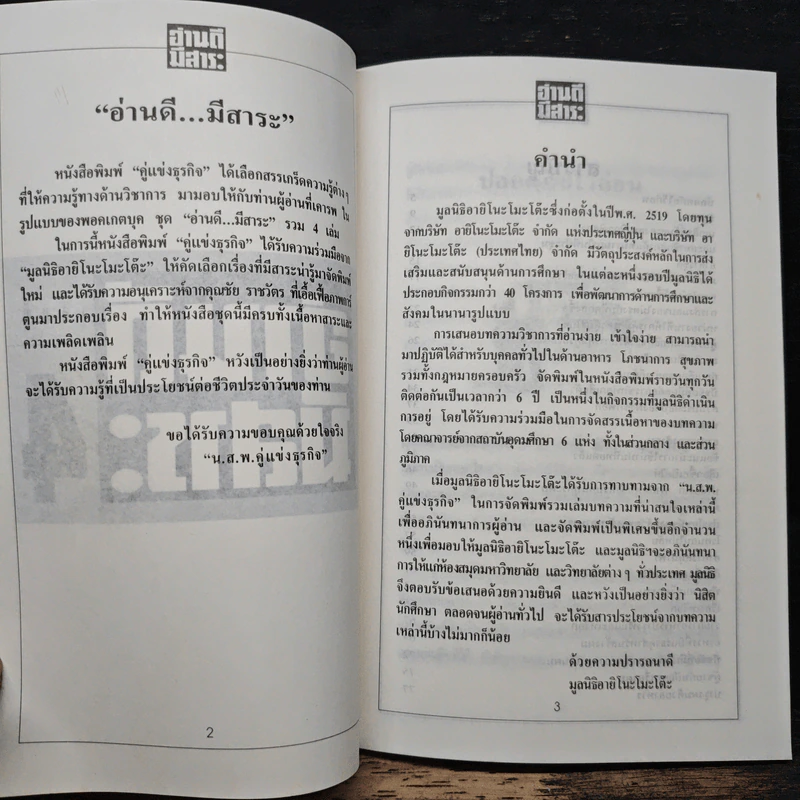 อ่านดี
มีสาระ
“อ่านดี...มีสาระ”
หนังสือพิมพ์ “คู่แข่งธุรกิจ” ได้เลือกสรรเกร็ดความรู้ต่างๆ
ที่ให้ความรู้ทางด้านวิชาการ มามอบให้กับท่านผู้อ่านที่เคารพ ใน
รูปแบบของพอคเกตบุค ชุด “อ่านดี...มีสาระ” รวม 4 เล่ม
ในการนี้หนังสือพิมพ์ “คู่แข่งธุรกิจ” ได้รับความร่วมมือจาก
“มูลนิธิอายิโนะโมะโต๊ะ” ให้คัดเลือกเรื่องที่มีสาระน่ารู้มาจัดพิมพ์
ใหม่ และได้รับความอนุเคราะห์จากคุณชัย ราชวัตร ที่เอื้อเฟื้อภาพการ์
ตูนมาประกอบเรื่อง ทำให้หนังสือชุดนี้มีครบทั้งเนื้อหาสาระและ
ความเพลิดเพลิน
หนังสือพิมพ์ “คู่แข่งธุรกิจ” หวังเป็นอย่างยิ่งว่าท่านผู้อ่าน
จะได้รับความรู้ที่เป็นประโยชน์ต่อชีวิตประจำวันของท่าน
ขอได้รับความขอบคุณด้วยใจจริง
“น.ส.พ.คู่แข่งธุรกิจ”
2
อ่านดี
มีสาระ
คำนำ
มูลนิธิอายิโนะโมะโต๊ะซึ่งก่อตั้งในปีพ.ศ. 2519 โดยทุน
จากบริษัท อายิโนะโมะโต๊ะ จำกัด แห่งประเทศญี่ปุ่น และบริษัท อา
ยิโนะโมะโต๊ะ (ประเทศไทย) จำกัด มีวัตถุประสงค์หลักในการส่ง
เสริมและสนับสนุนด้านการศึกษา ในแต่ละหนึ่งรอบปีมูลนิธิได้
ประกอบกิจกรรมกว่า 40 โครงการ เพื่อพัฒนาการด้านการศึกษาและ
สังคมในนานารูปแบบ
การเสนอบทความวิชาการที่อ่านง่าย เข้าใจง่าย สามารถนำ
มาปฏิบัติได้สำหรับบุคคลทั่วไปในด้านอาหาร โภชนาการ สุขภาพ
รวมทั้งกฎหมายครอบครัว จัดพิมพ์ในหนังสือพิมพ์รายวันทุกวัน
ติดต่อกันเป็นเวลากว่า 6 ปี เป็นหนึ่งในกิจกรรมที่มูลนิธิดำเนิน
การอยู่ โดยได้รับความร่วมมือในการจัดสรรเนื้อหาของบทความ
โดยคณาจารย์จากสถาบันอุดมศึกษา 6 แห่ง ทั้งในส่วนกลาง และส่วน
ภูมิภาค
เมื่อมูลนิธิอายิโนะโมะโต๊ะได้รับการทาบทามจาก “น.ส.พ.
คู่แข่งธุรกิจ” ในการจัดพิมพ์รวมเล่มบทความที่น่าสนใจเหล่านี้
เพื่ออภินันทนาการผู้อ่าน และจัดพิมพ์เป็นพิเศษขึ้นอีกจำนวน
หนึ่งเพื่อมอบให้มูลนิธิอายิโนะโมะโต๊ะ และมูลนิธิฯจะอภินันทนา
การให้แก่ห้องสมุดมหาวิทยาลัย และวิทยาลัยต่างๆ ทั่วประเทศ มูลนิธิ
จึงตอบรับข้อเสนอด้วยความยินดี และหวังเป็นอย่างยิ่งว่า นิสิต
นักศึกษา ตลอดจนผู้อ่านทั่วไป จะได้รับสารประโยชน์จากบทความ
เหล่านี้บ้างไม่มากก็น้อย
ด้วยความปรารถนาดี
มูลนิธิอายิโนะโมะโต๊ะ
3